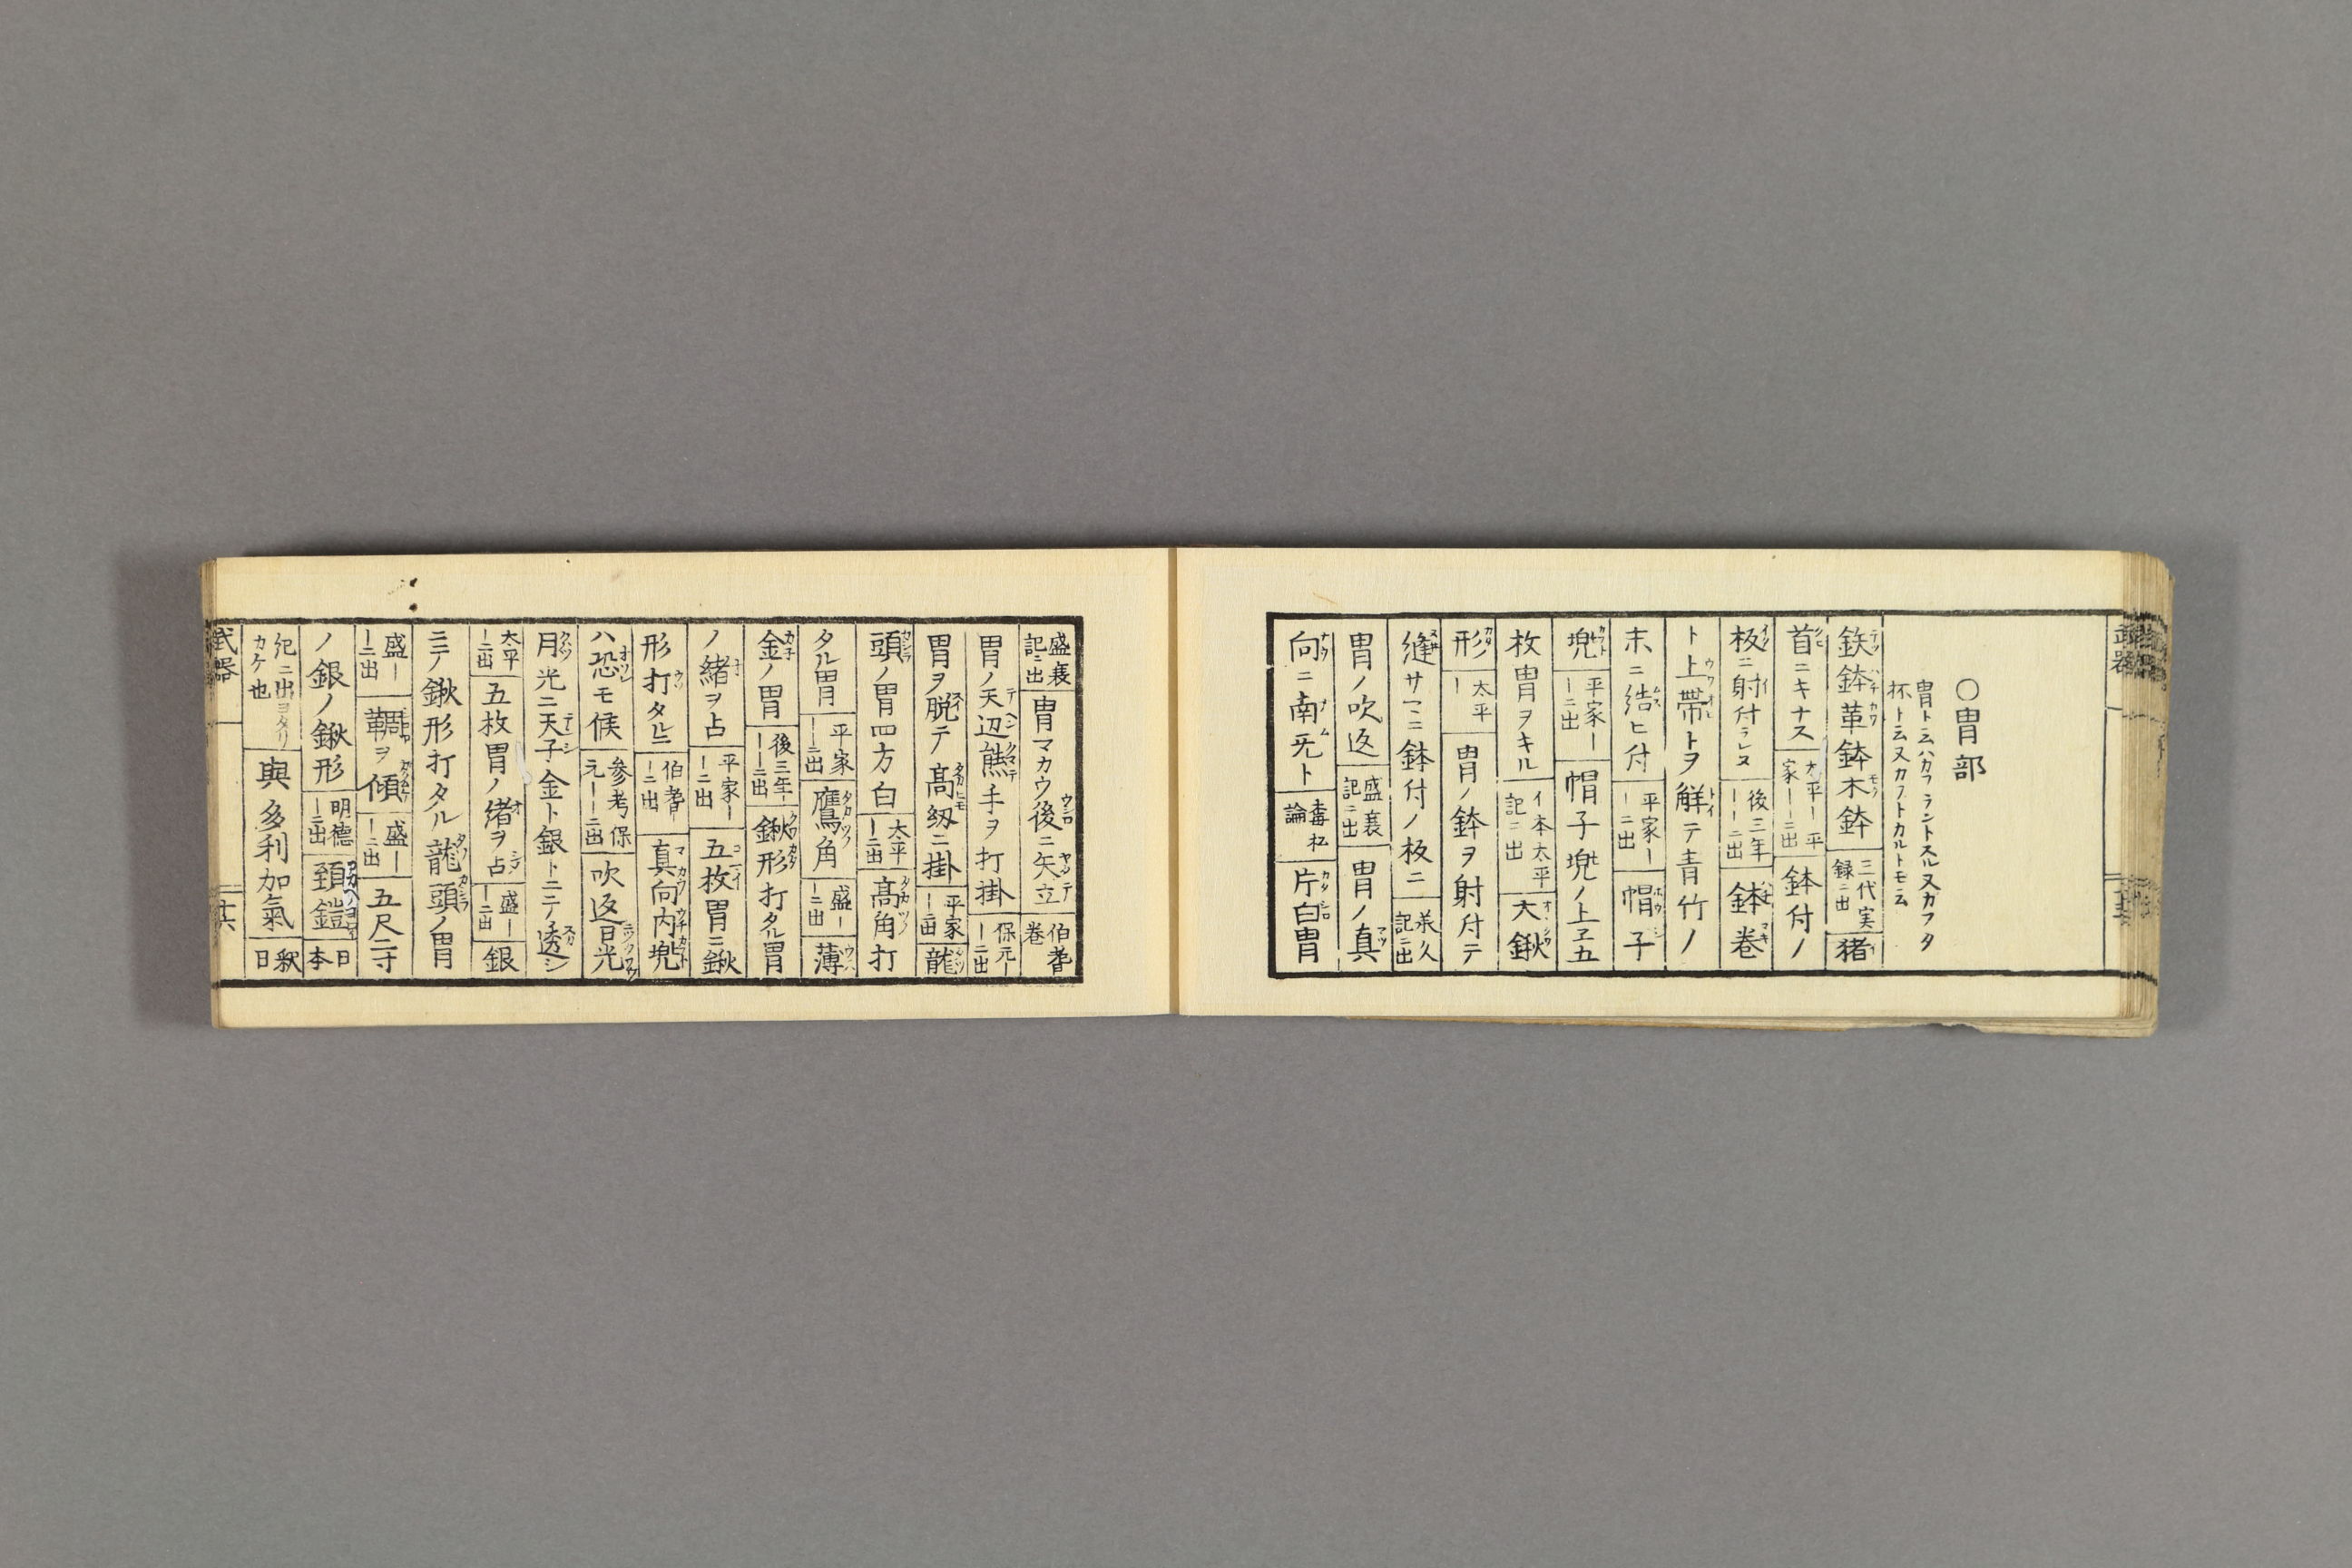 ○冑部
冑ト云ハカフラントスル又カフタ
抔ト云又カフトカルトモ云
鉄鉢革鉢木鉢 三代実録ニ出 猪
首ニキナス 太平ー平家ーニ出 鉢付ノ
板ニ射付ラレヌ 後三年ーニ出 鉢巻
ト上帯トヲ解テ青竹ノ
末ニ結ヒ付 平家ーニ出 帽子
兜 平家ーニ出 帽子兜ノ上ヱ五
枚冑ヲキル イ本太平記ニ出 大鍬
形 太平ー 冑ノ鉢ヲ射付テ
縫サマニ鉢付ノ板ニ 承久記ニ出
冑ノ吹返 盛衰記ニ出 冑ノ真
向ニ南无ト 論 片白冑
盛衰記ニ出 冑マカウ後ニ矢立 伯耆巻
冑ノ天辺熊手ヲ打掛 保元ーニ出
冑ヲ脱テ高紐ニ掛 平家ーニ出 龍
頭ノ冑四方白 太平ーニ出 高角打
タル冑 平家ーニ出 鷹角 盛ーニ出 薄
金ノ冑 後三年ーニ出 鍬形打タル冑
ノ緒ヲ占 平家ーニ出 五枚冑ニ鍬
形打タルニ 伯耆ーニ出 真向内兜
ハ恐モ候 参考保元ーニ出 吹返日光
月光ニ天子金ト銀トニテ透シ
太平ーニ出 五枚冑ノ緒ヲ占 盛ーニ出 銀
ニテ鍬形打タル龍頭ノ冑
盛ーニ出 ヲ傾 盛ーニ出 五尺二寸
ノ銀ノ鍬形 明徳ーニ出 頚鎧 日本
紀ニ出ヨタリカケ也 與多利加氣 釈日
武器
十六